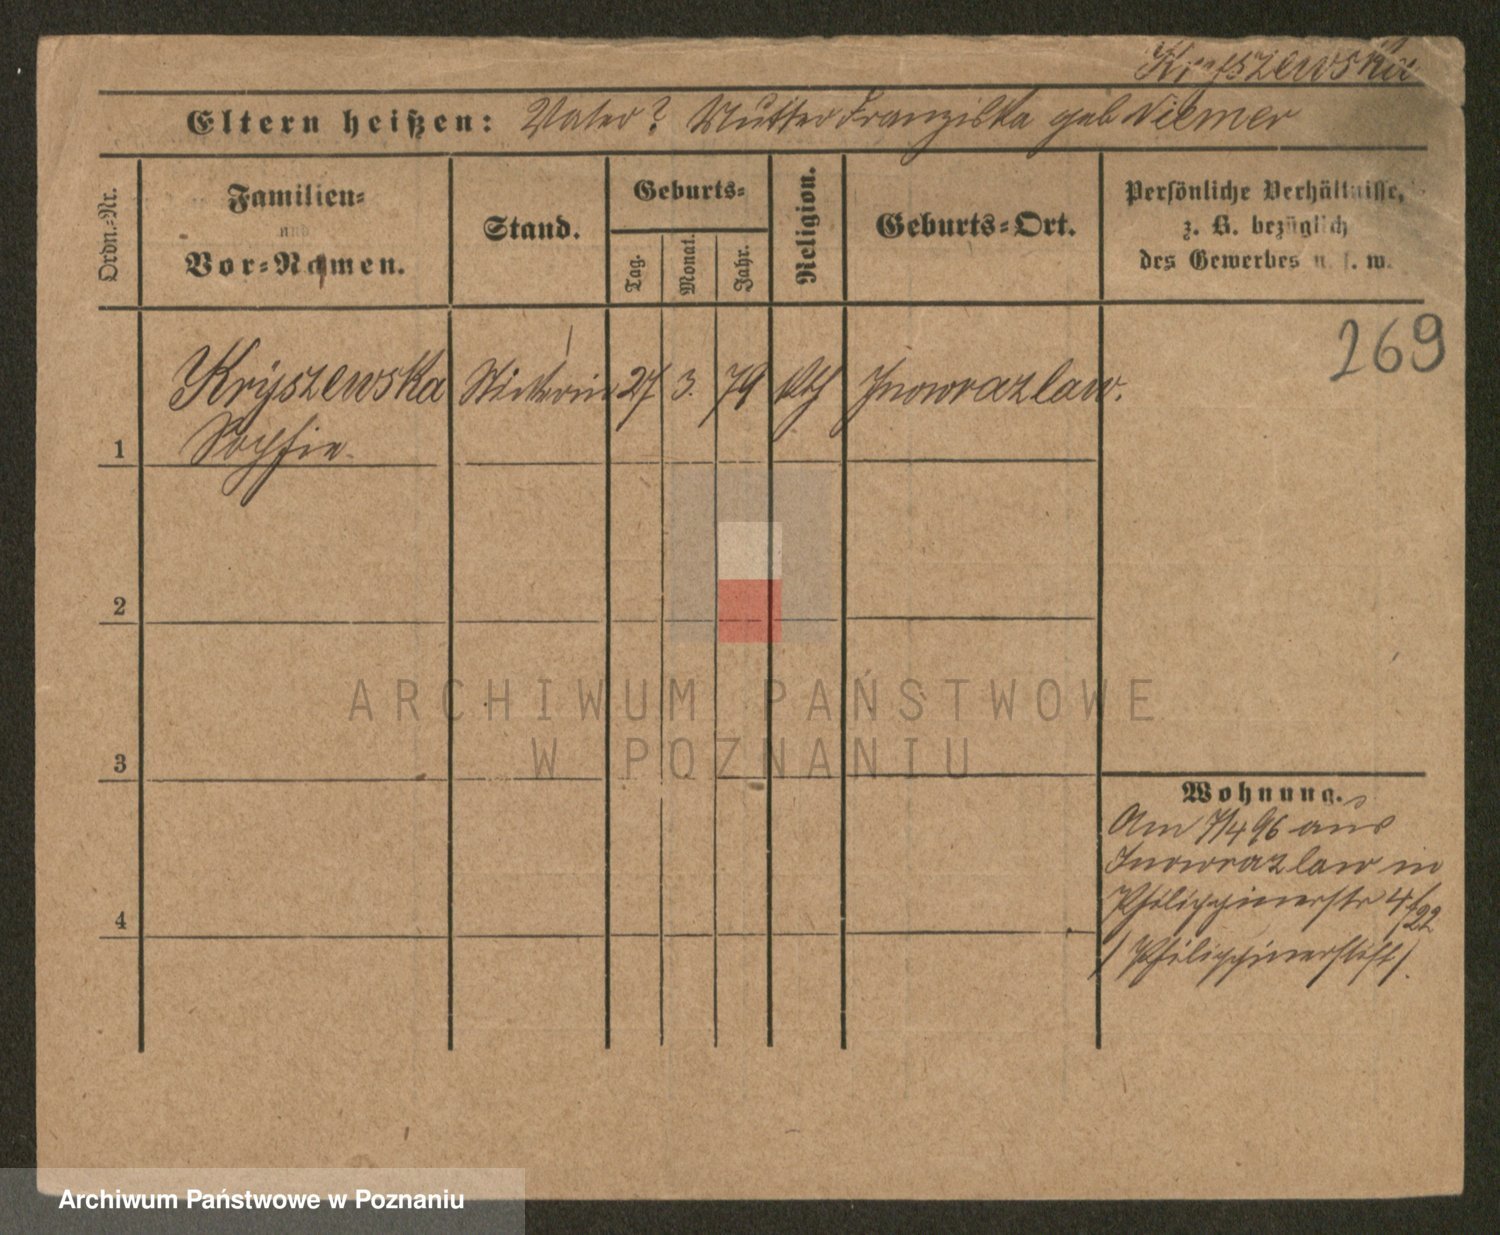 Kryszewska
Eltern heißen: Vater? Mutter Franziska geb Niemer
Ordn.-Nr.
Familien-
und
Vor-Namen.
Stand.
Geburts-
Tag.
Monat.
Jahr.
Religion.
Geburts-Ort.
Persönliche Verhältnisse,
z. B. bezüglich
des Gewerbes u. s. w.
269
Kryszewska 27 3. 79 kth Inowrazlaw.
1 Sophie
2
3
4
Wohnung.
Am 7/4 96 aus
Inowrazlaw in
Philippinerstr 4/22
/Philippinerstift/.
ARCHIWUM PAŃSTWOWE
W POZNANIU
Archiwum Państwowe w Poznaniu